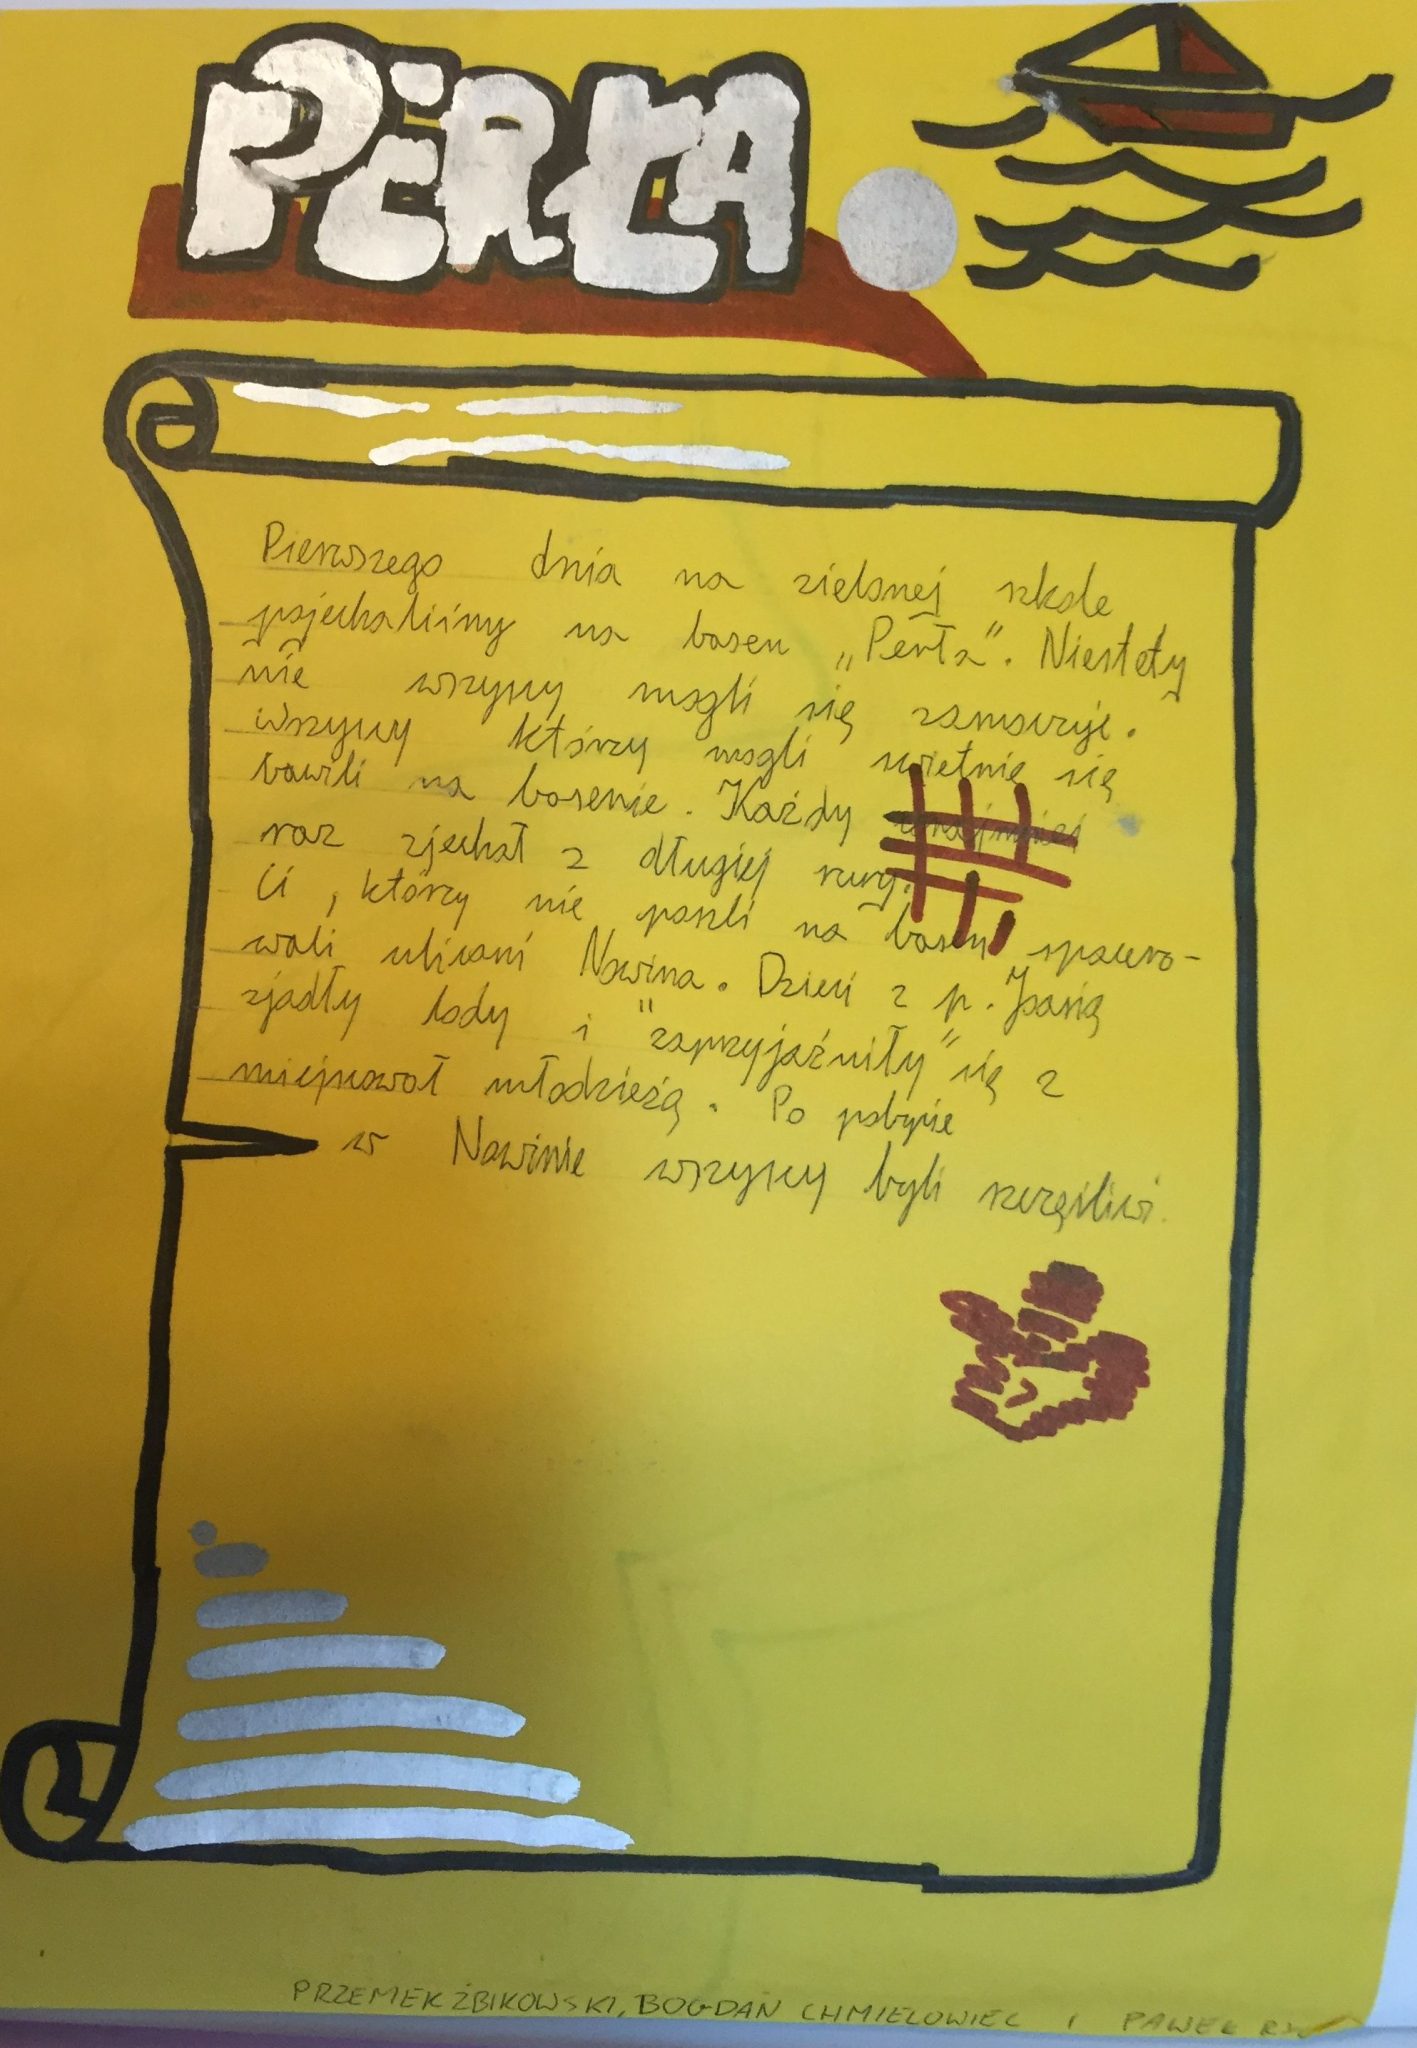 PERŁA
Pierwszego dnia na zielonej szkole
pojechaliśmy na basen „Perła”. Niestety
nie wszyscy mogli się zamoczyć.
wszyscy którzy mogli świetnie się
bawili na basenie. Każdy
raz zjechał z długiej rury.
Ci, którzy nie poszli na basen spacero-
wali ulicami Nowina. Dzieci z p. Joasią
zjadły lody i "zaprzyjaźniły" się z
miejscową młodzieżą. Po pobycie
w Nowinie wszyscy byli szczęśliwi.
PRZEMEK ŻBIKOWSKI, BOGDAN CHMIELOWIEC I PAWEŁ